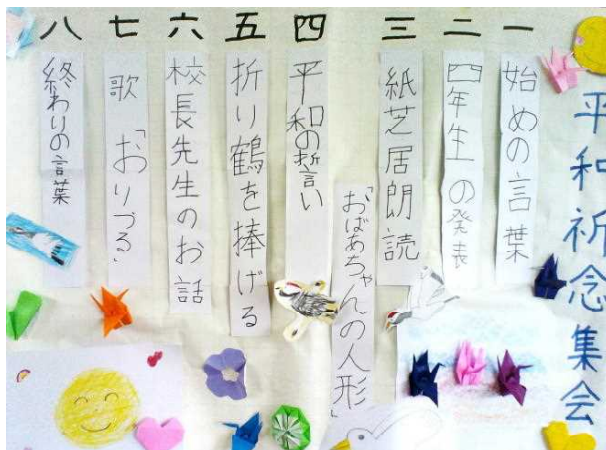 平和祈念集会
一 始めの言葉
二 四年生の発表
三 紙芝居朗読
「おばあちゃんの人形」
四 平和の誓い
五 折り鶴を捧げる
六 校長先生のお話
七 歌「おりづる」
八 終わりの言葉